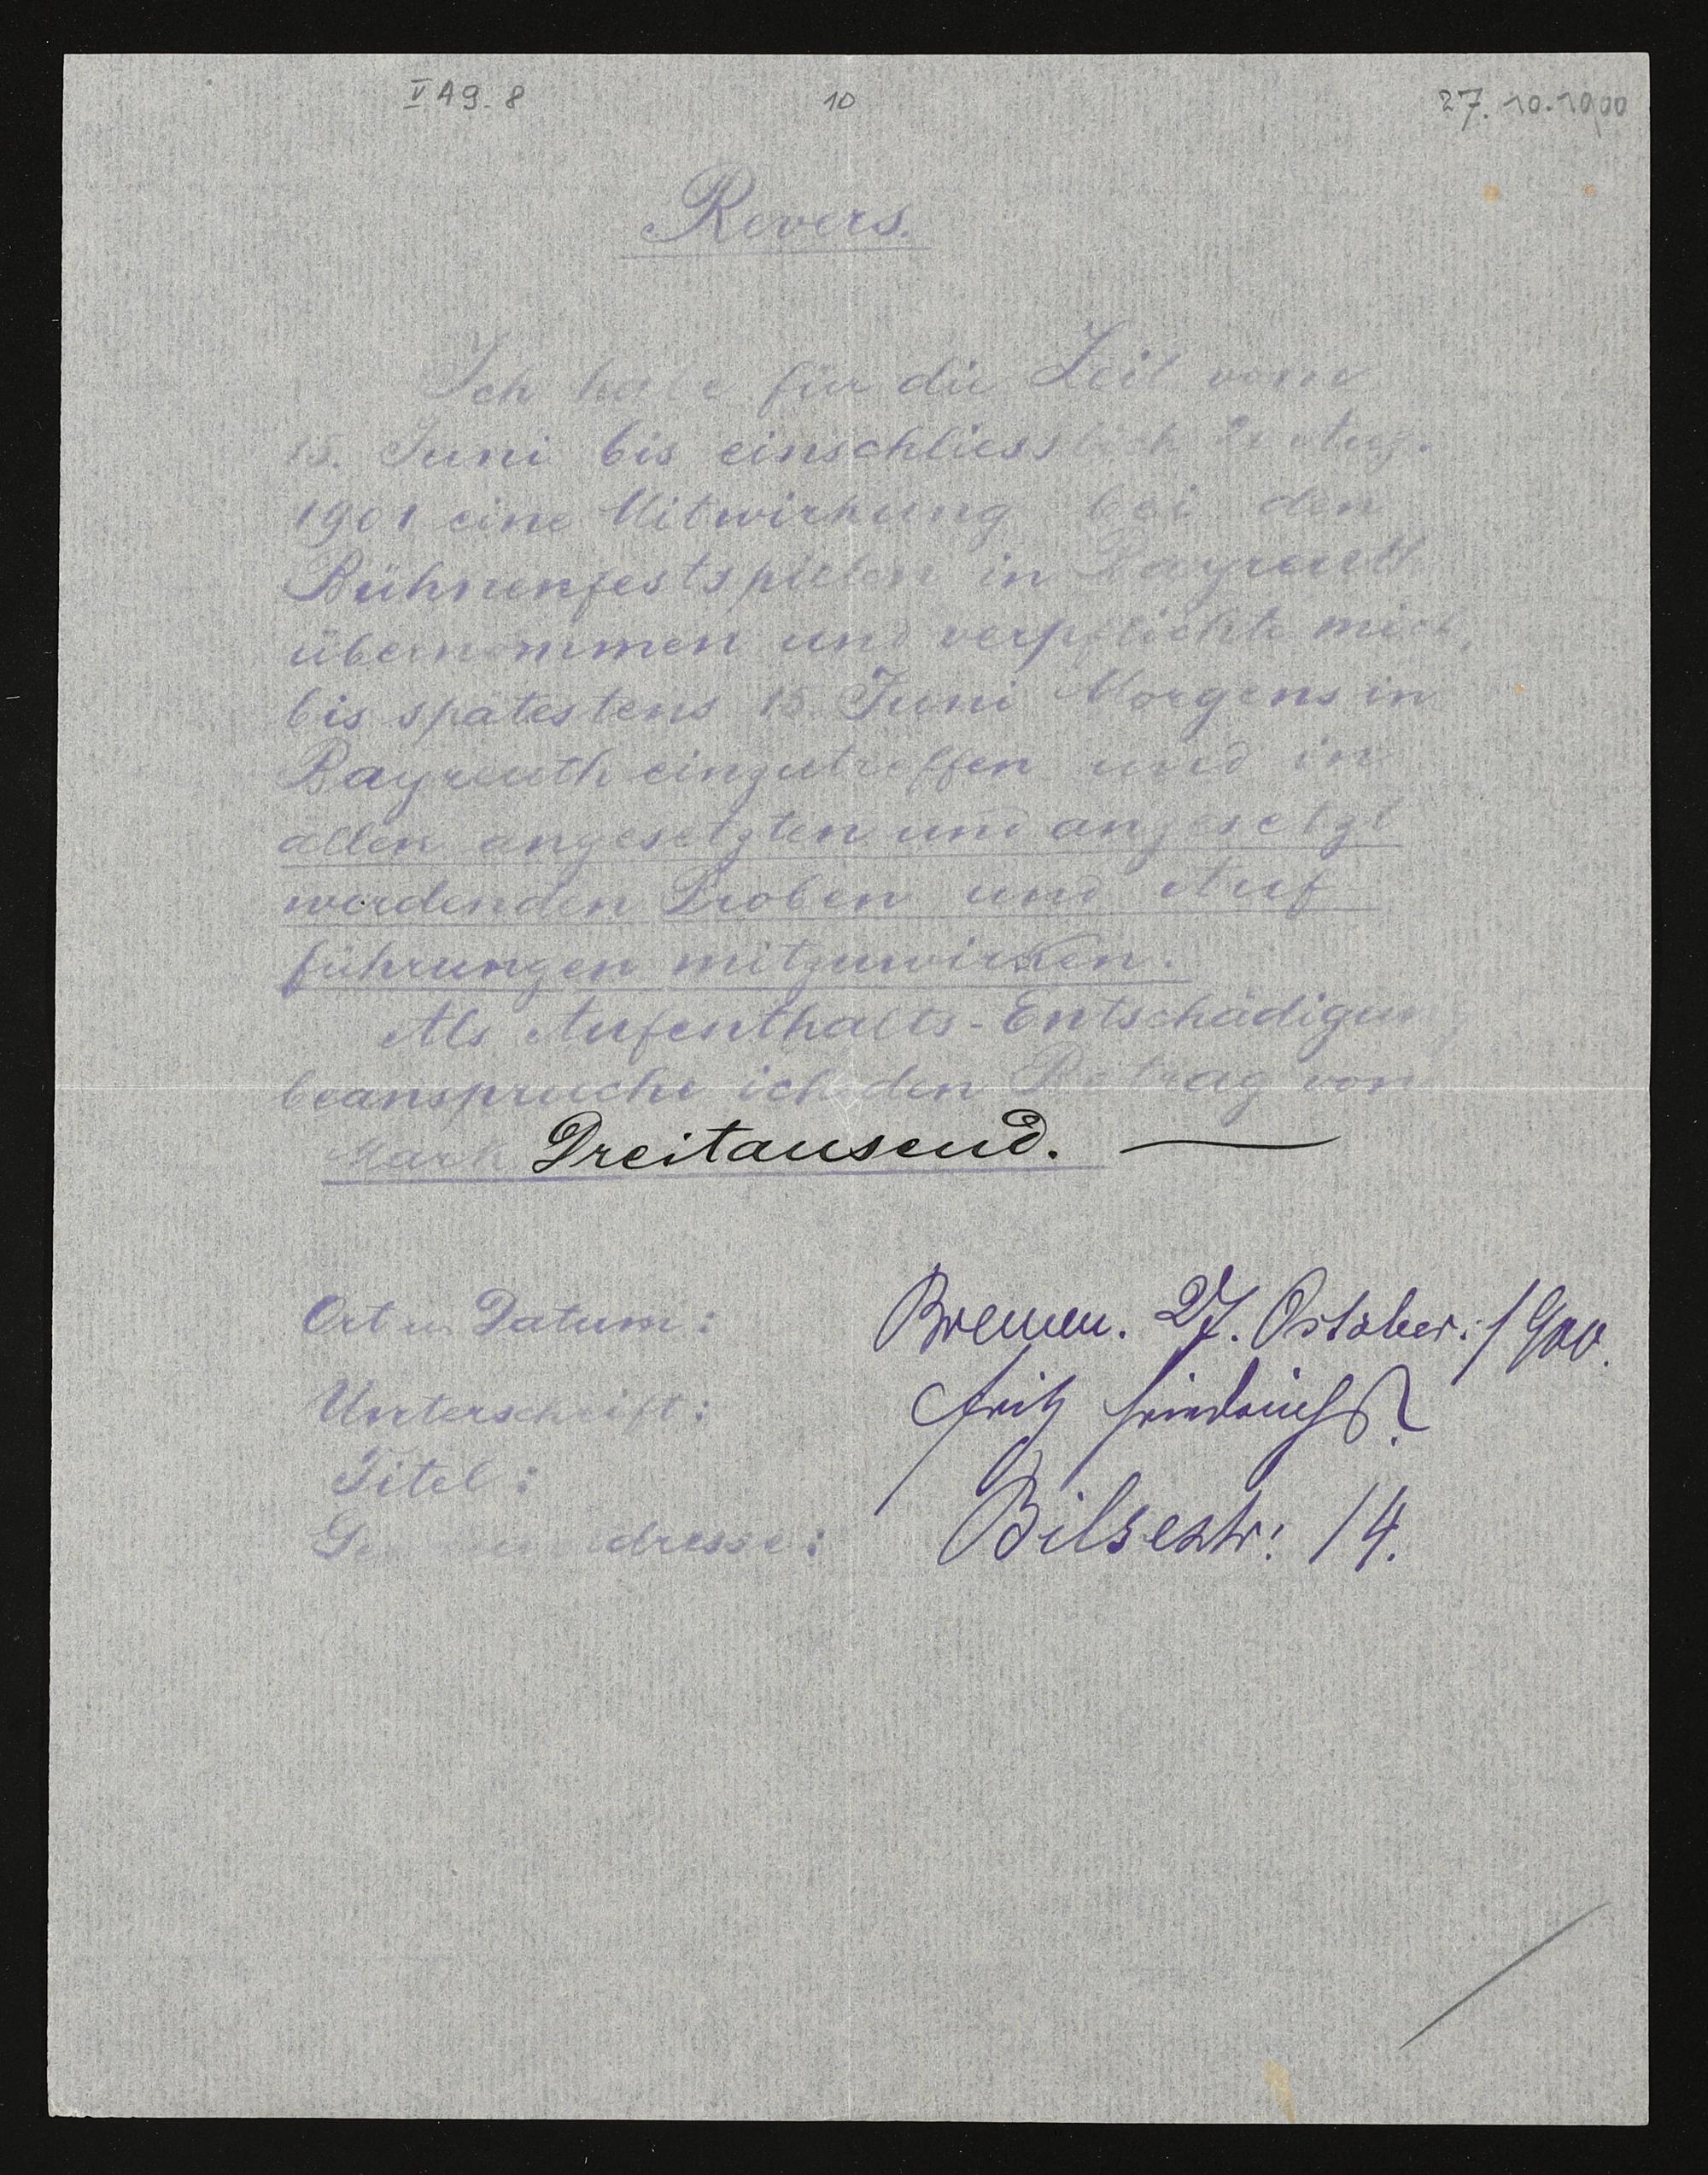 V A 9. 8
10
27. 10. 1900
Revers.
Ich habe für die Zeit vom
15. Juni bis einschliesslich Aug.
1901 eine Mitwirkung bei den
Bühnenfestspielen in Bayreuth
übernommen und verpflichte mich,
bis spätestens 15. Juni Morgens in
Bayreuth einzutreffen und in
allen angesetzten und angesetzt
werdenden Proben und Auf
führungen mitzuwirken.
Als Aufenthalts-Entschädigung
beanspruche ich den Betrag von
Mark Dreitausend. —
Ort u. Datum: Bremen. 27. October. 1900.
Unterschrift: Fritz Friedrichs.
Titel:
adresse: Bilsestr: 14.